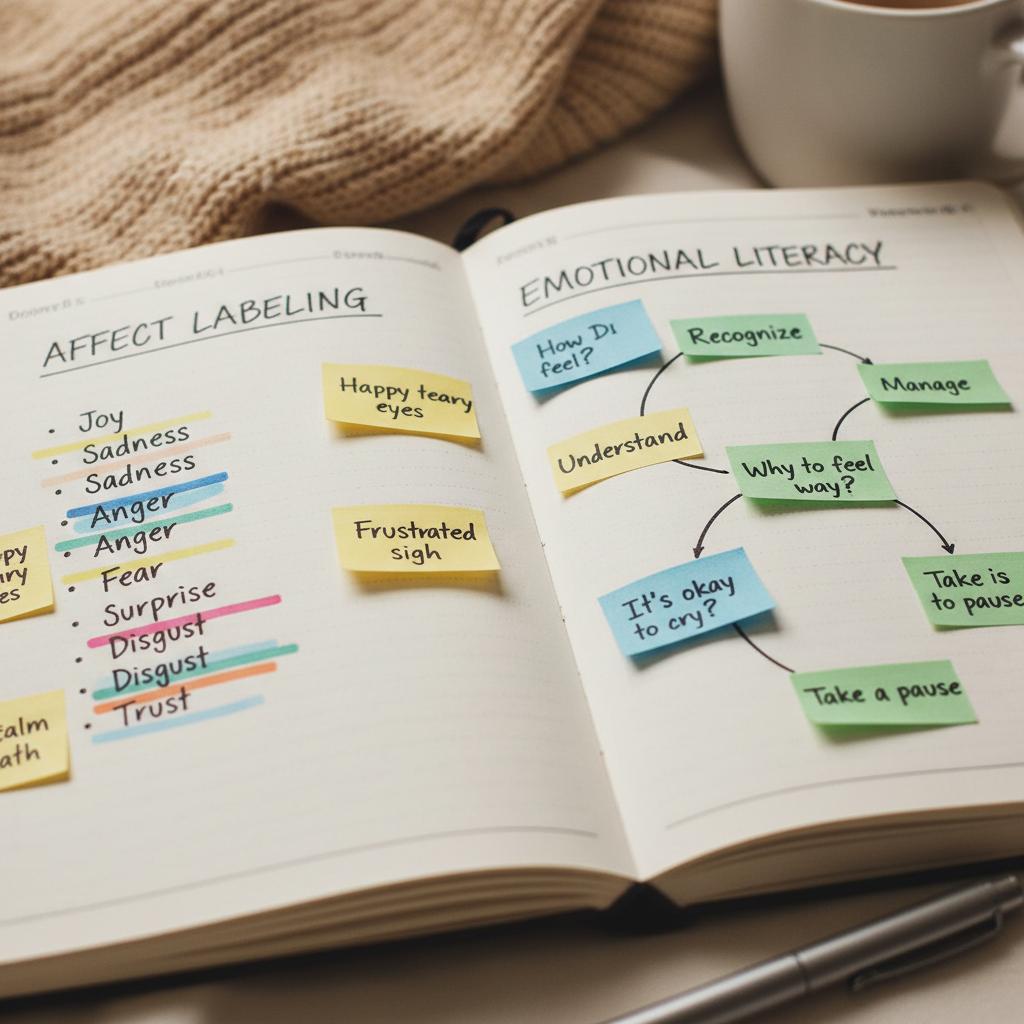 AFFECT LABELING
• Joy
• Sadness
• Sadness
• Anger
• Anger
• Fear
• Surprise
• Disgust
• Disgust
• Trust
Happy teary
eyes
Frustrated
sigh
EMOTIONAL LITERACY
How DI
feel?
Recognize
Manage
Understand
Why to feel
way?
It's okay
to cry?
Take is
to pause
Take a pause